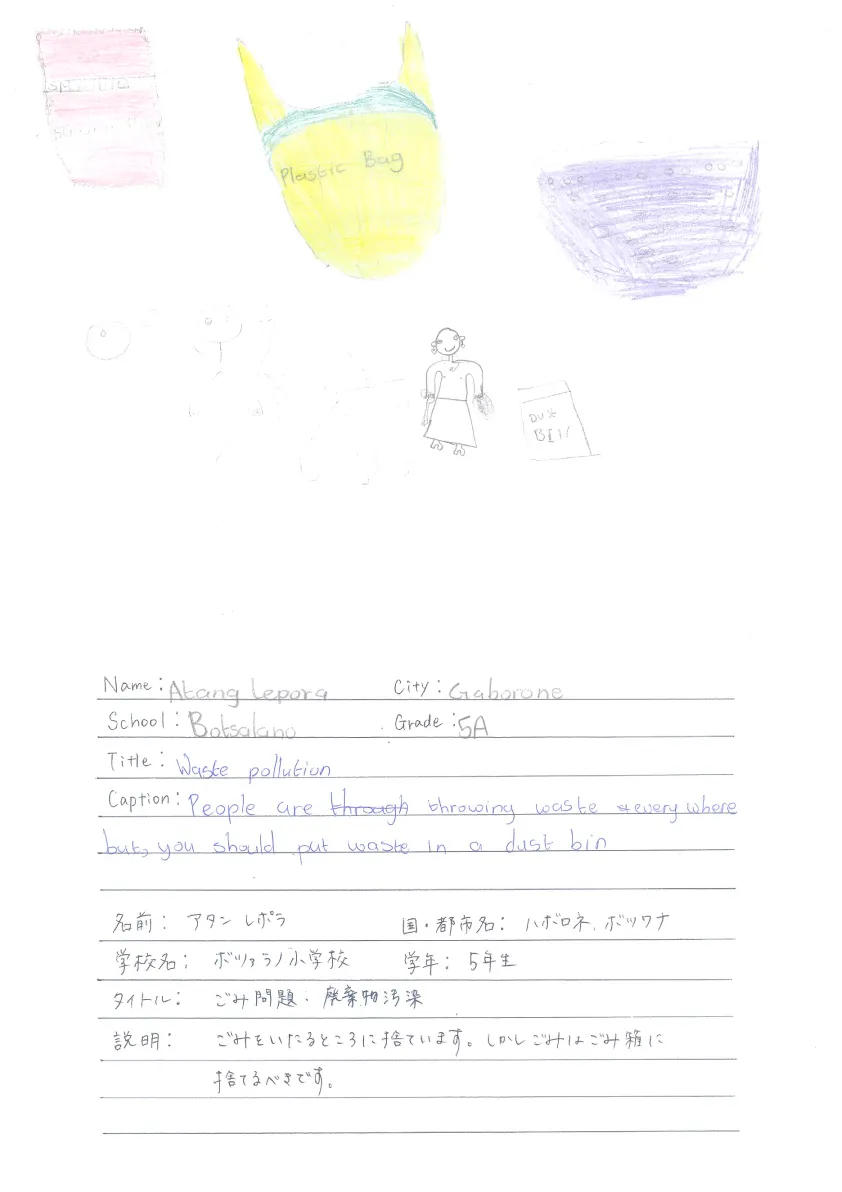 Plastic Bag
DUSt
BIN
Name: Atang Lepora City: Gaborone
School: Botsalano Grade: 5A
Title: Waste pollution
Caption: People are through throwing waste every where
but, you should put waste in a dust bin
名前: アタン レポラ 国・都市名: ハボロネ、ボツワナ
学校名: ボツァラノ小学校 学年: 5年生
タイトル: ごみ問題・廃棄物汚染
説明: ごみをいたるところに捨ています。しかしごみはごみ箱に
捨てるべきです。